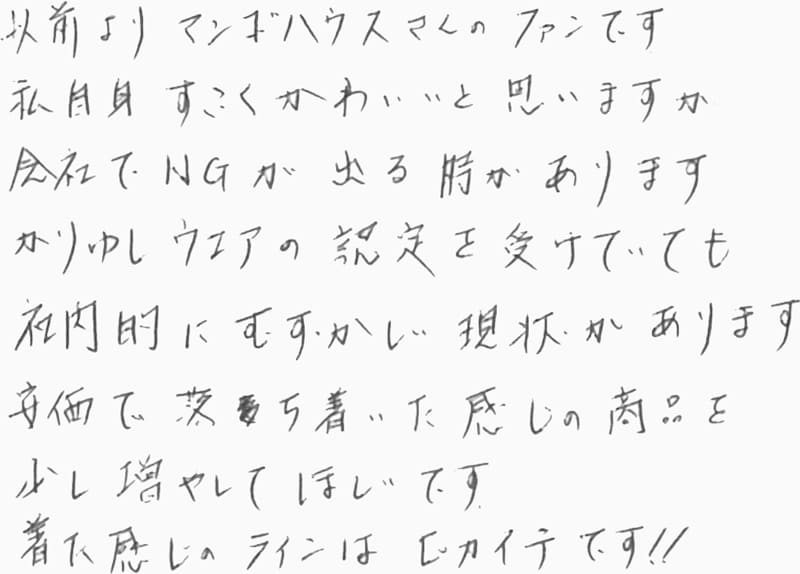 以前より マンゴハウスさんの ファンです
私自身 すごくかわいいと 思いますが
会社で NGが 出る 時が あります
かりゆしウエアの 認定を受けていても
社内的に むずかしい 現状が あります
安価で 落ち着いた 感じの 商品を
少し 増やして ほしいです
着た感じの ラインは ピカイチです!!